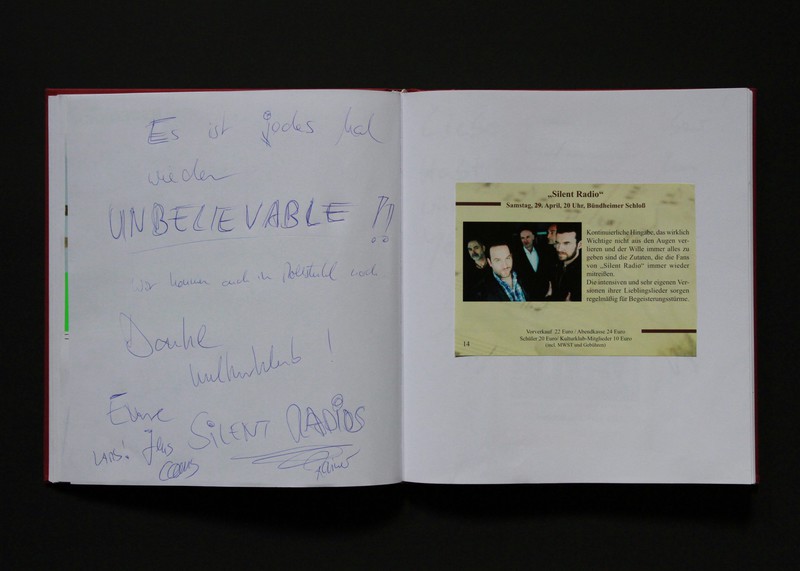 Es ist jedes Mal
wieder
UNBELIEVABLE !!
wir kommen auch im Rollstuhl noch
Danke
Kulturklub !
Eure
SILENT RADIOS
LARS! Jens
Claus
Rainer
„Silent Radio“
Samstag, 29. April, 20 Uhr, Bündheimer Schloß
Kontinuierliche Hingabe, das wirklich
Wichtige nicht aus den Augen ver-
lieren und der Wille immer alles zu
geben sind die Zutaten, die die Fans
von „Silent Radio“ immer wieder
mitreißen.
Die intensiven und sehr eigenen Ver-
sionen ihrer Lieblingslieder sorgen
regelmäßig für Begeisterungsstürme.
Vorverkauf 22 Euro / Abendkasse 24 Euro
Schüler 20 Euro/ Kulturklub-Mitglieder 10 Euro
(incl. MWST und Gebühren)
14